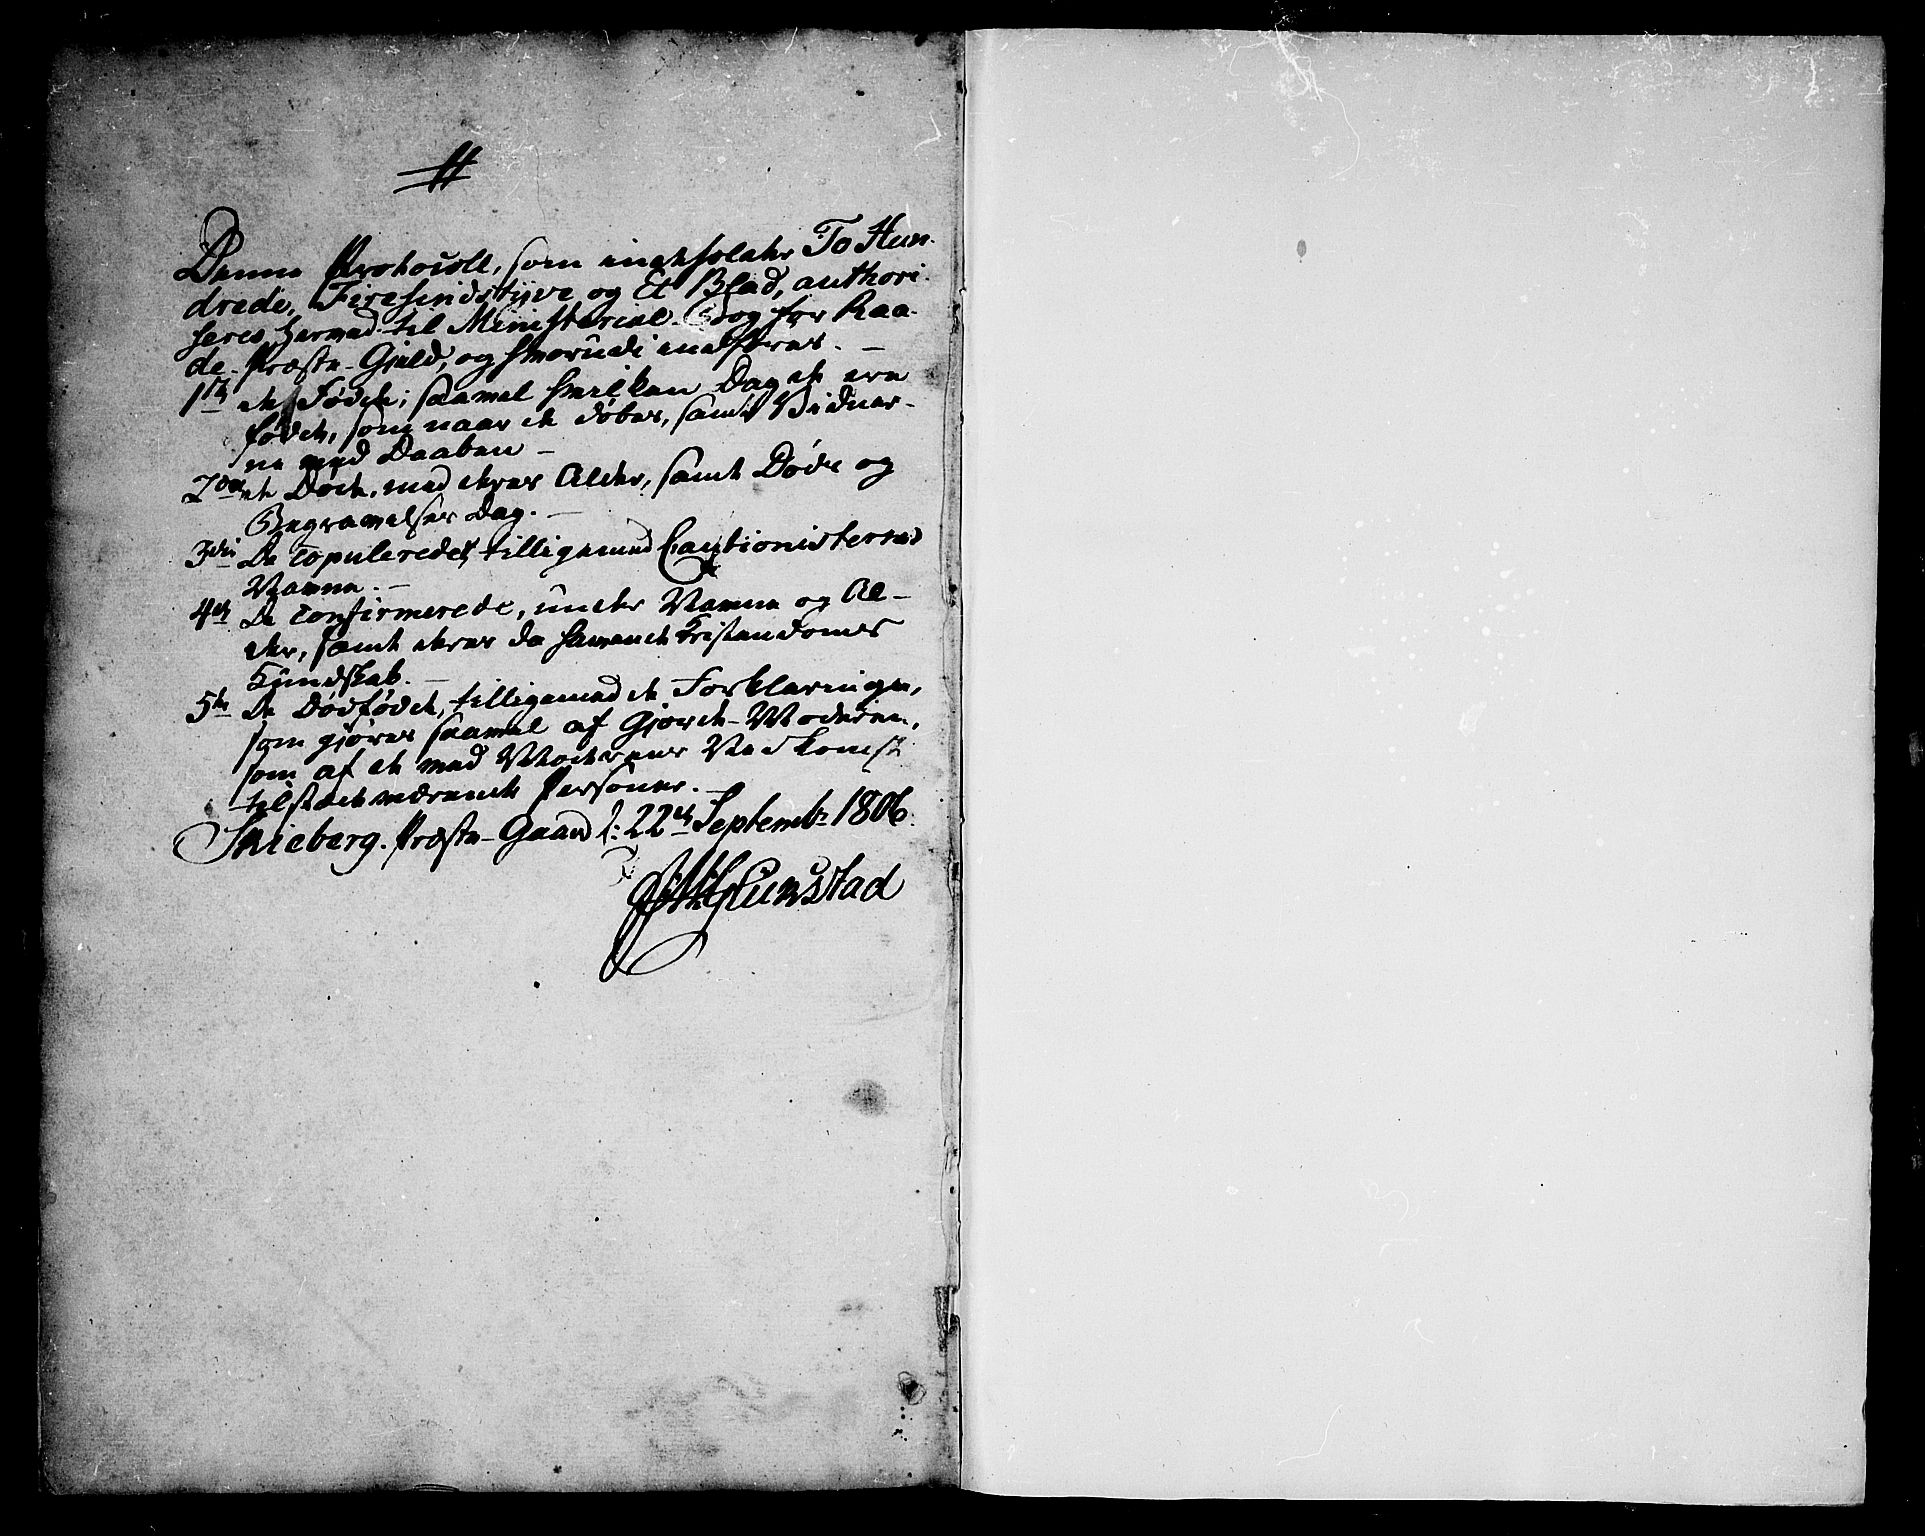 Denne Protocoll, som indeholder To Hun-
drede, Firesindstyve og Et Blad, authori-
seres hermed til Ministerial-Bog for Raa-
de-Præste-Gjæld, og hvorudi indføres. —
1te de Fødde; saavel hvilken Dag de ere
fødde, som naar de døbes, samt Vidner-
ne ved Daaben —
2den de Døde, med deres Alder, samt Døds og
Begravelses Dag. —
3die De Copulerede, tilligemed Cautionisternes
Navne. —
4de De Confirmerede, under Navne og Al-
der, samt deres da havende Kristendoms
Kundskab. —
5te De Dødfødde, tilligemed de Forklaringer,
som gjøres saavel af Gjorde-Moderen,
som af de ved Moderens Nedkomst
tilstædeværende Personer. —
Skieberg-Præste-Gaard d: 22de Septembr 1806.
Grunstad